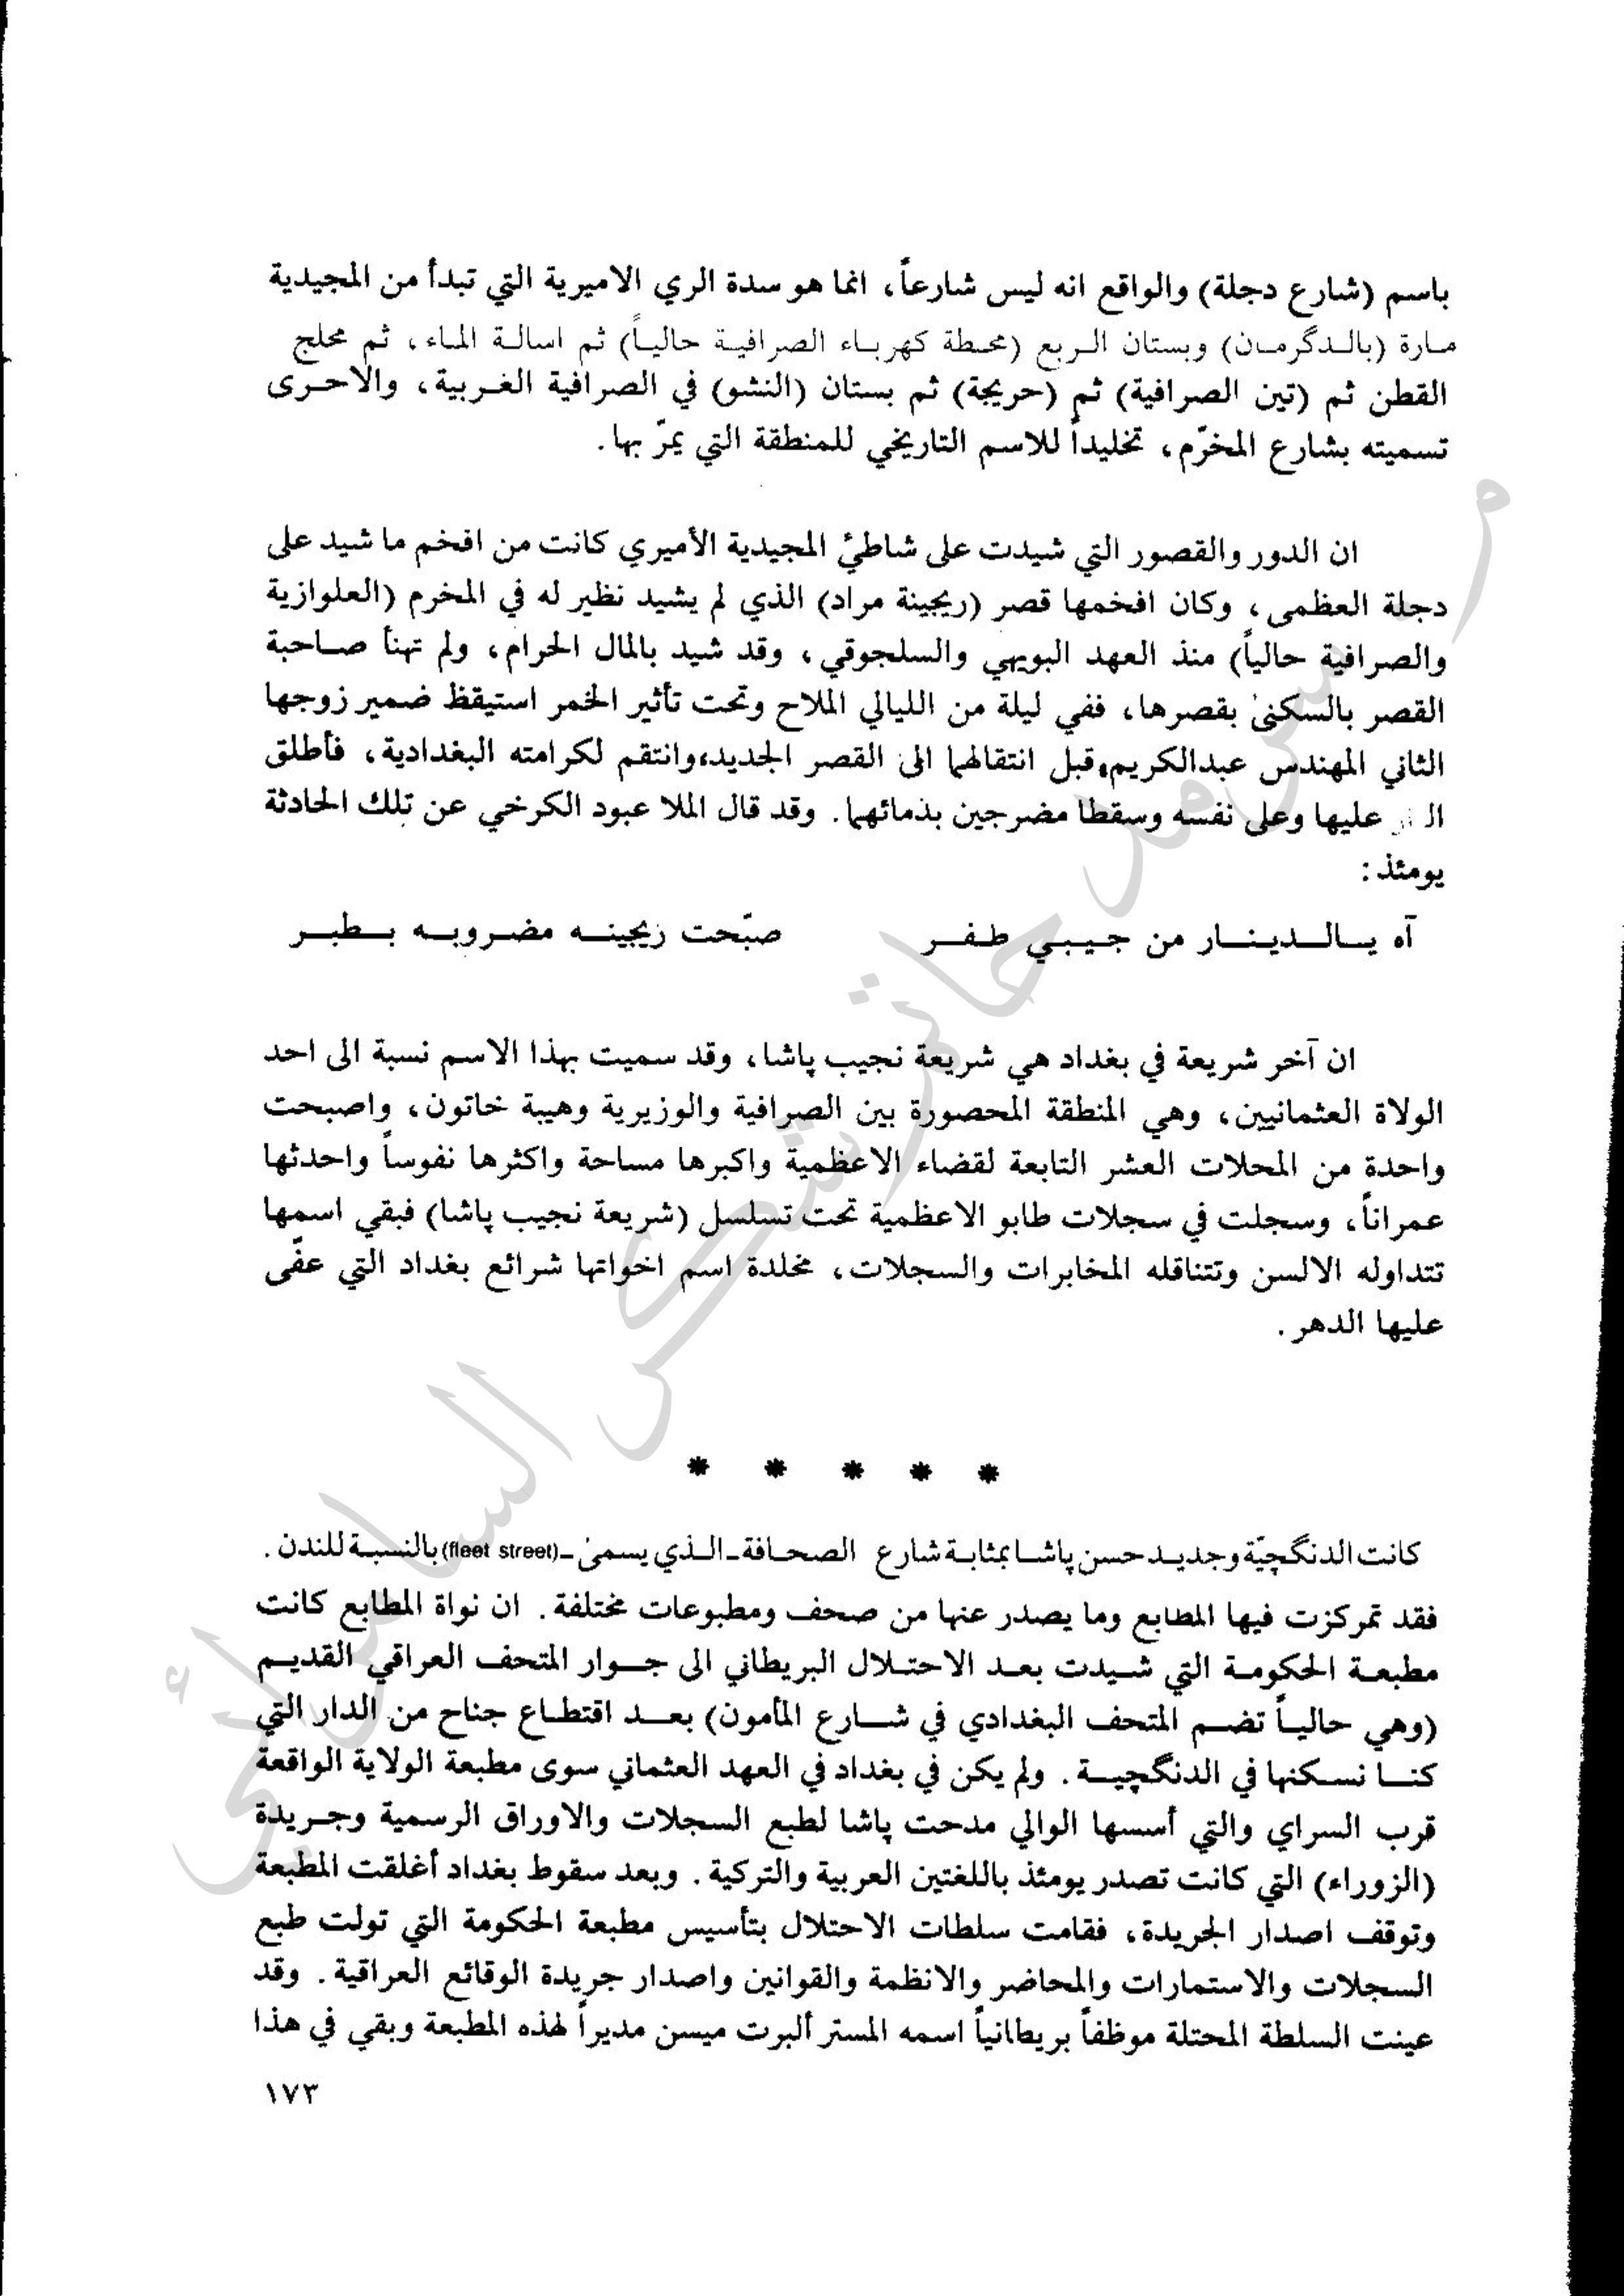 باسم (شارع دجلة) والواقع انه ليس شارعاً، انما هو سدة الري الاميرية التي تبدأ من المجيدية
مارة (بالدگرمان) وبستان الربع (محطة كهرباء الصرافية حالياً) ثم اسالة الماء، ثم محلج
القطن ثم (تين الصرافية) ثم (حريجة) ثم بستان (النشو) في الصرافية الغربية، والاحرى
تسميته بشارع المخرّم، تخليداً للاسم التاريخي للمنطقة التي يمرّ بها.
ان الدور والقصور التي شيدت على شاطئ المجيدية الأميري كانت من افخم ما شيد على
دجلة العظمى، وكان افخمها قصر (ريجينة مراد) الذي لم يشيد نظير له في المخرم (العلوازية
والصرافية حالياً) منذ العهد البويهي والسلجوقي، وقد شيد بالمال الحرام، ولم تهنأ صاحبة
القصر بالسكنى بقصرها، ففي ليلة من الليالي الملاح وتحت تأثير الخمر استيقظ ضمير زوجها
الثاني المهندس عبدالكريم، وقبل انتقالهما الى القصر الجديد، وانتقم لكرامته البغدادية، فأطلق
عليها وعلى نفسه وسقطا مضرجين بذمائهما. وقد قال الملا عبود الكرخي عن تلك الحادثة
يومئذ:
آه يالدينار من جيبي طفر صبّحت زيجينه مضروبه بطبر
ان آخر شريعة في بغداد هي شريعة نجيب پاشا، وقد سميت بهذا الاسم نسبة الى احد
الولاة العثمانيين، وهي المنطقة المحصورة بين الصرافية والوزيرية وهيبة خاتون، واصبحت
واحدة من المحلات العشر التابعة لقضاء الاعظمية واكبرها مساحة واكثرها نفوساً واحدثها
عمراناً، وسجلت في سجلات طابو الاعظمية تحت تسلسل (شريعة نجيب پاشا) فبقي اسمها
تتداوله الالسن وتتناقله المخابرات والسجلات، مخلدة اسم اخواتها شرائع بغداد التي عفّى
عليها الدهر.
* * * * *
كانت الدنگچيّة وجديد حسن پاشا بمثابة شارع الصحافة ـ الذي يسمى ـ (fleet street) بالنسبة للندن.
فقد تمركزت فيها المطابع وما يصدر عنها من صحف ومطبوعات مختلفة. ان نواة المطابع كانت
مطبعة الحكومة التي شيدت بعد الاحتلال البريطاني الى جوار المتحف العراقي القديم
(وهي حالياً تضم المتحف البغدادي في شارع المأمون) بعد اقتطاع جناح من الدار التي
كنا نسكنها في الدنگچية. ولم يكن في بغداد في العهد العثماني سوى مطبعة الولاية الواقعة
قرب السراي والتي أسسها الوالي مدحت پاشا لطبع السجلات والاوراق الرسمية وجريدة
(الزوراء) التي كانت تصدر يومئذ باللغتين العربية والتركية. وبعد سقوط بغداد أغلقت المطبعة
وتوقف اصدار الجريدة، فقامت سلطات الاحتلال بتأسيس مطبعة الحكومة التي تولت طبع
السجلات والاستمارات والمحاضر والانظمة والقوانين واصدار جريدة الوقائع العراقية. وقد
عينت السلطة المحتلة موظفاً بريطانياً اسمه المستر ألبرت ميسن مديراً لهذه المطبعة وبقي في هذا
١٧٣
سرمد حاتم شكر السامرائي